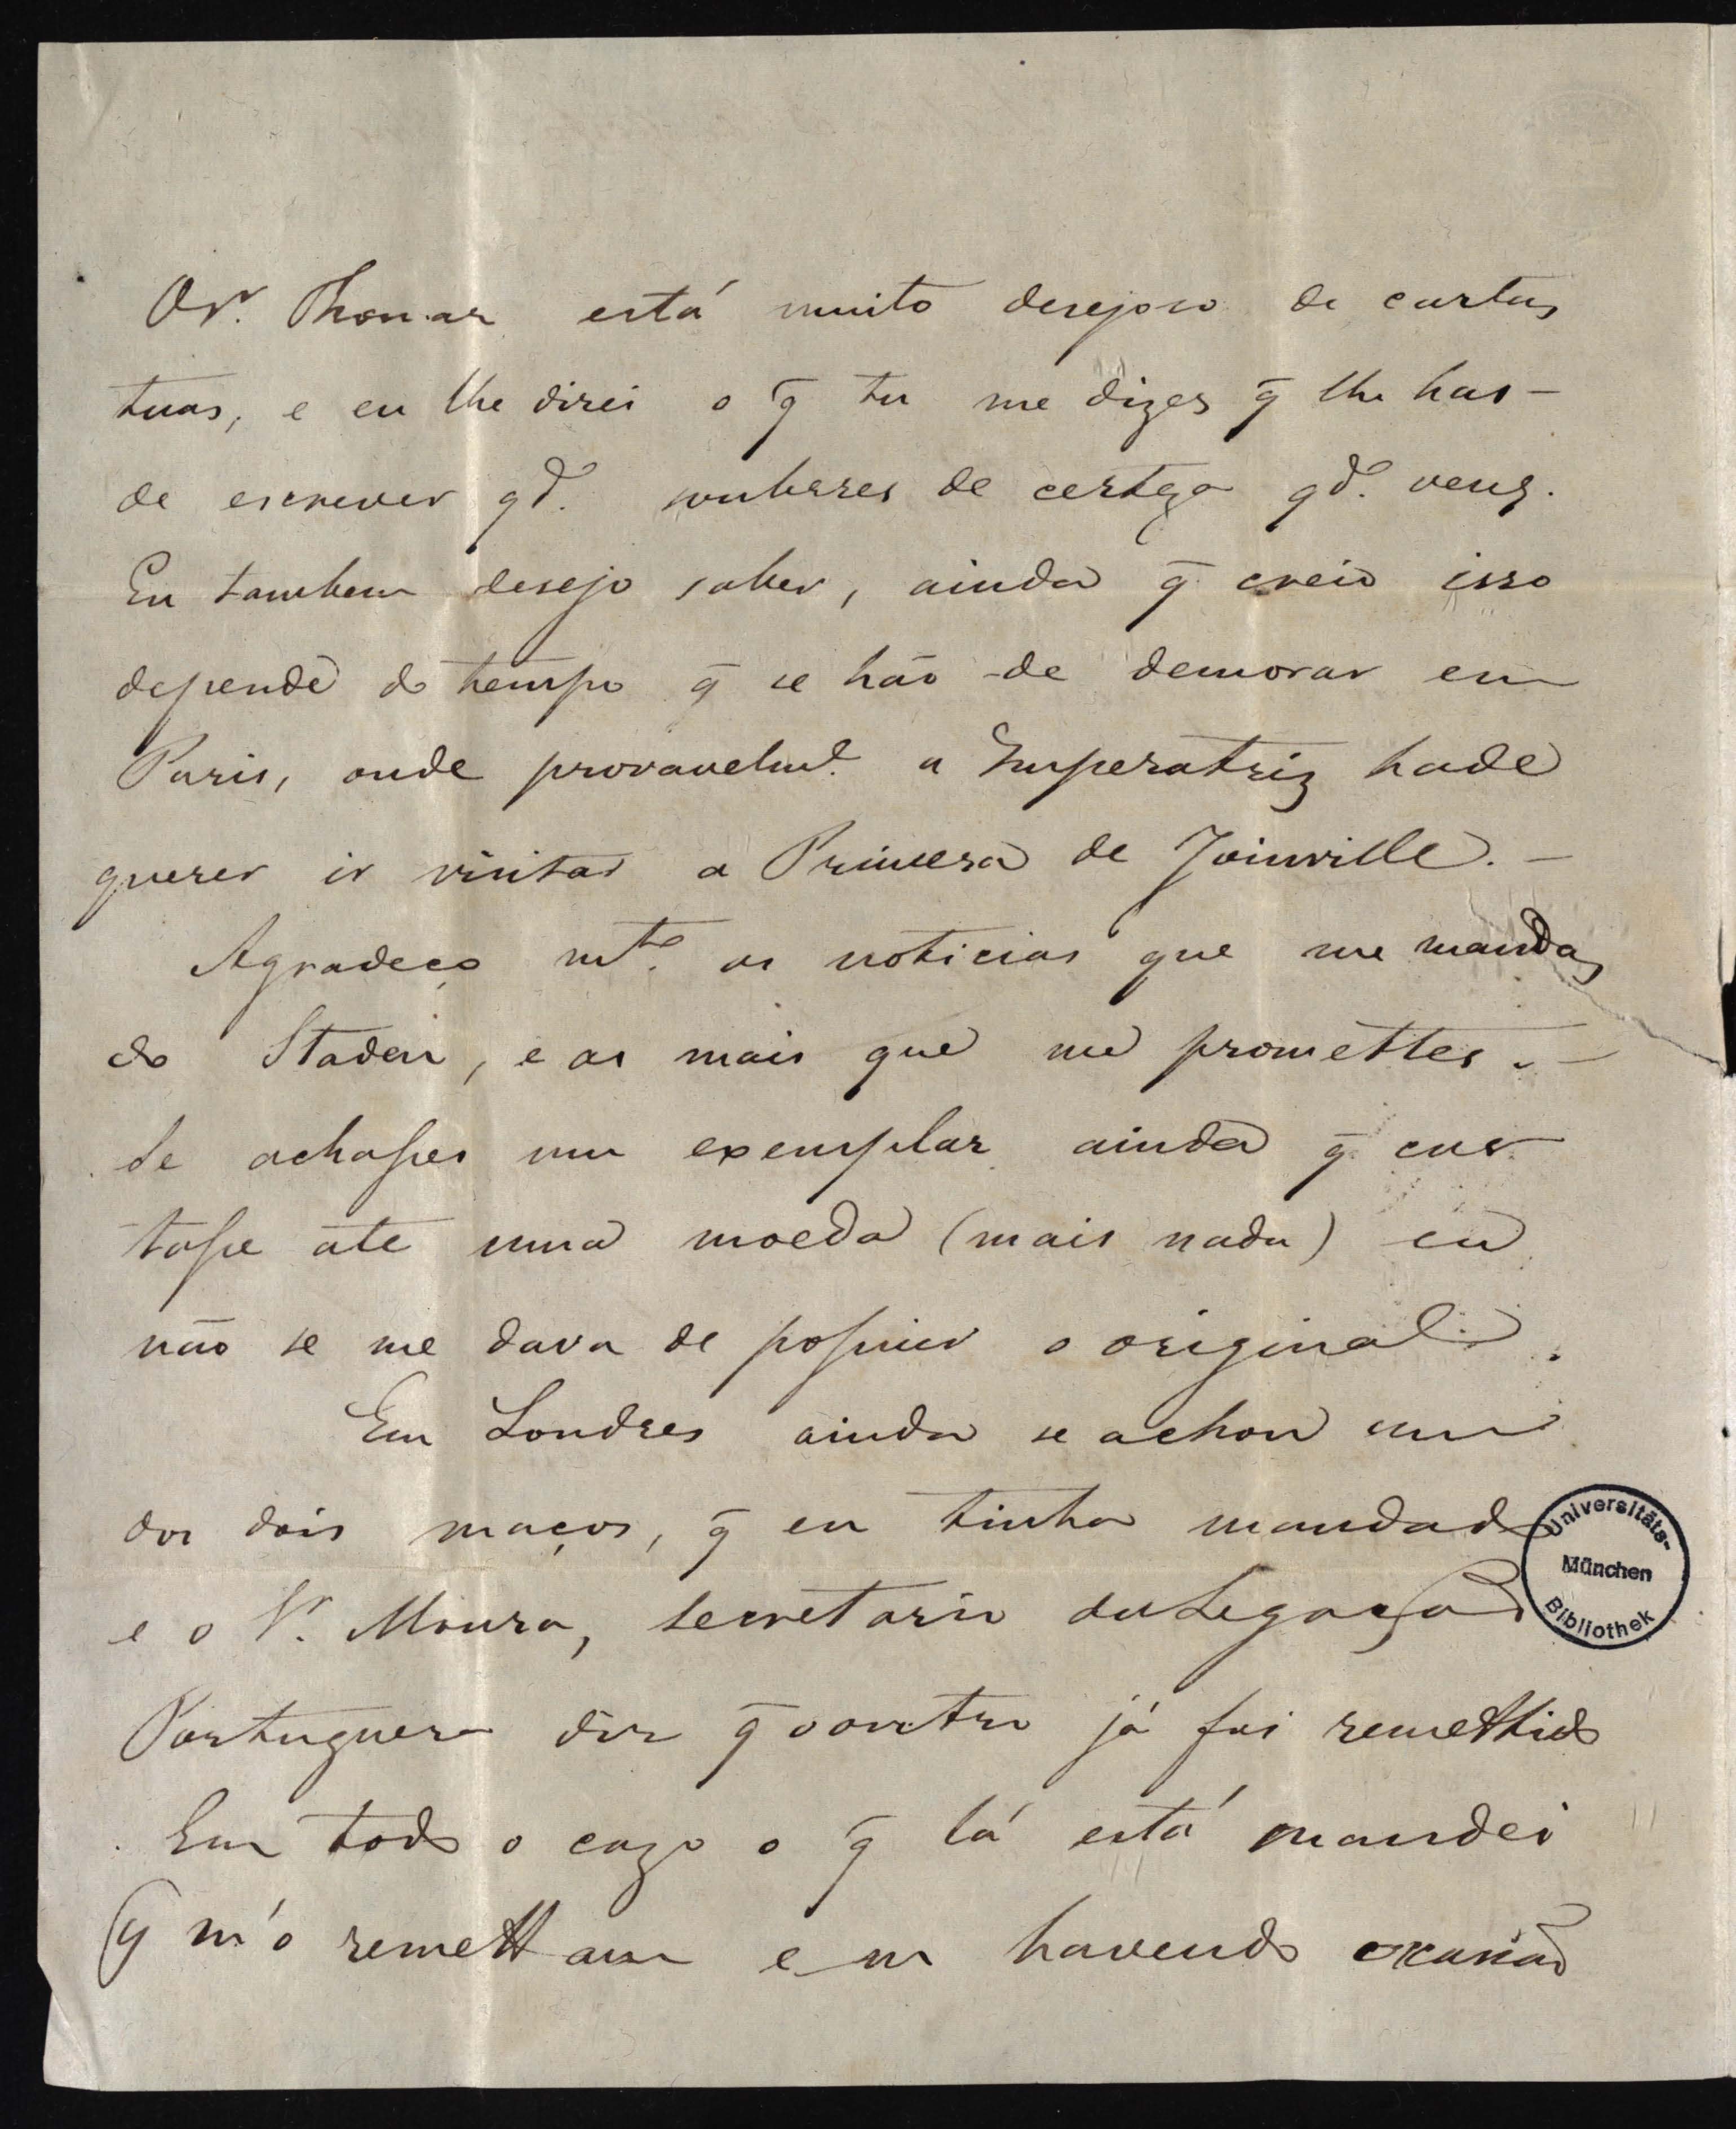 O Sr. Thomar está muito desejoso de cartas
tuas, e eu lhe direi o q̃ tu me dizes q̃ lhe has-
de escrever qdo. souberes de certeza qdo. vens.
Eu tambem desejo saber, ainda q̃ creio isso
depende do tempo q̃ se hão-de demorar em
Paris, onde provavelmte. a Imperatriz hade
querer ir visitar a Princesa de Joinville. —
Agradeço mto. as noticias que me mandas
do Staden, e as mais que me promettes. —
Se achasses um exemplar ainda q̃ cus-
tasse até uma moeda (mais nada) eu
não se me dava de possuir o original.
Em Londres ainda se achou um
dos dois maços, q̃ eu tinha mandado
e o Sr. Moura, secretario da Legação
Portuguesa diz q̃ o outro já foi remettido
Em todo o cazo o q̃ lá está mandei
q̃ m'o remettam em havendo occasião
Universitäts-
München
Bibliothek